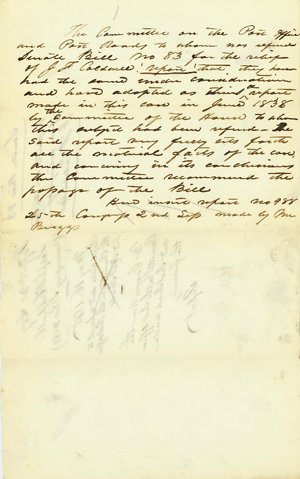 The Committee on the Post Office
and Post Roads to whom was referred
Senate Bill No 83 for the relief
of J. Caldwell, report that they have
had the same under consideration
and have adopted as their report
made in this case in June 1838
by the Committee of the House to whom
this subject had been referred. The
said report very fully sets forth
all the material facts of the case
and concurring in its conclusions
the Committee recommend the
passage of the Bill
Here insert report no 988
25th Congress 2nd Sess made by Mr
Briggs